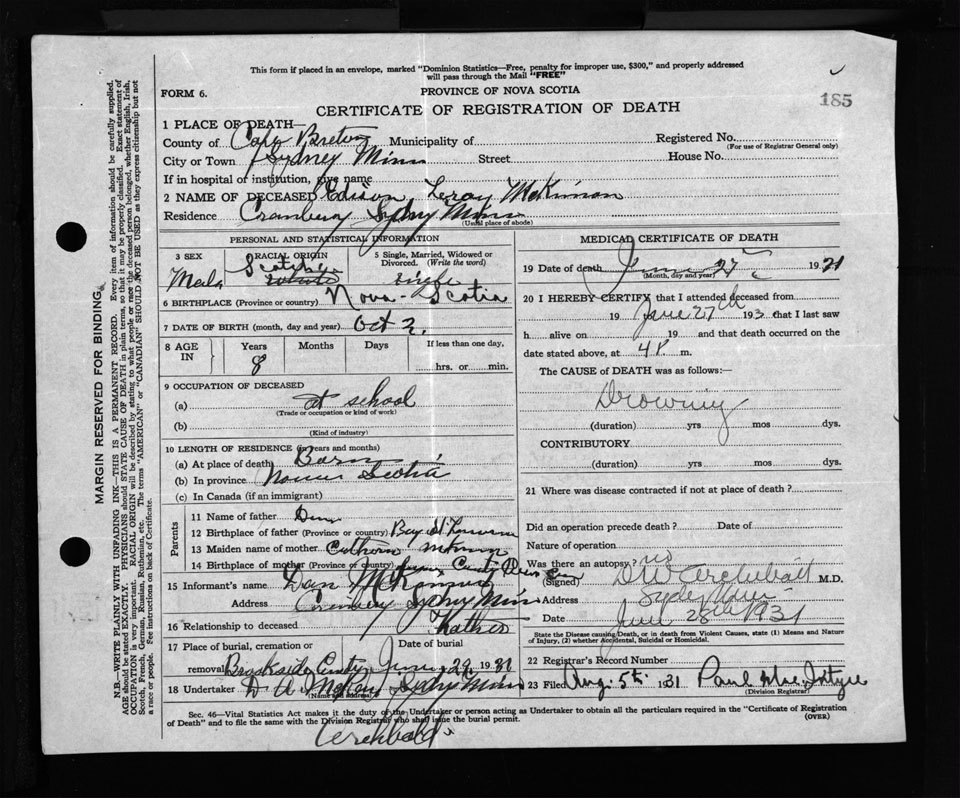 This form if placed in an envelope, marked "Dominion Statistics—Free, penalty for improper use, $300," and properly addressed
will pass through the Mail "FREE"
FORM 6.
PROVINCE OF NOVA SCOTIA
185
CERTIFICATE OF REGISTRATION OF DEATH
1 PLACE OF DEATH—
County of Cape Breton Municipality of Registered No.
(For use of Registrar General only)
City or Town Sydney Mines Street House No.
If in hospital or institution, give name
2 NAME OF DECEASED Edison Leroy McKinnon
Residence Cranberry Sydney Mines
(Usual place of abode)
PERSONAL AND STATISTICAL INFORMATION
3 SEX RACIAL ORIGIN 5 Single, Married, Widowed or
Divorced. (Write the word)
Male Scotch Single
6 BIRTHPLACE (Province or country) Nova-Scotia
7 DATE OF BIRTH (month, day and year) Oct 2.
8 AGE IN Years Months Days If less than one day,
8 hrs. or min.
9 OCCUPATION OF DECEASED
(a) at school
(Trade or occupation or kind of work)
(b)
(Kind of industry)
10 LENGTH OF RESIDENCE (in years and months)
(a) At place of death Born
(b) In province Scotia
(c) In Canada (if an immigrant)
Parents
11 Name of father Dan
12 Birthplace of father (Province or country) Bay St
13 Maiden name of mother
14 Birthplace of mother (Province or country)
15 Informant's name Dan
Address Sydney Mines
16 Relationship to deceased Father
17 Place of burial, cremation or Date of burial
removal Brookside June 29, 1931
18 Undertaker D. A. Sydney Mines
(Name and address)
MEDICAL CERTIFICATE OF DEATH
19 Date of death June 27 1931
(Month, day and year)
20 I HEREBY CERTIFY that I attended deceased from
19 June 27th 193 that I last saw
h alive on 19 and that death occurred on the
date stated above, at 4 P. m.
The CAUSE of DEATH was as follows:—
Drowning
(duration) yrs mos dys.
CONTRIBUTORY
(duration) yrs mos dys.
21 Where was disease contracted if not at place of death?
Did an operation precede death? Date of
Nature of operation
Was there an autopsy? no
(Signed) D W Archibald M.D.
Address Sydney Mines
Date June 28th 1931
State the Disease causing Death, or in death from Violent Causes, state (1) Means and Nature
of Injury, (2) Whether Accidental, Suicidal or Homicidal.
22 Registrar's Record Number
23 Filed Aug. 5th 1931 Paul
(Division Registrar)
Sec. 46—Vital Statistics Act makes it the duty of the Undertaker or person acting as Undertaker to obtain all the particulars required in the "Certificate of Registration
of Death" and to file the same with the Division Registrar who shall issue the burial permit.
(OVER)
Archibald.
MARGIN RESERVED FOR BINDING.
N.B.—WRITE PLAINLY WITH UNFADING INK—THIS IS A PERMANENT RECORD. Every item of information should be carefully supplied.
AGE should be stated EXACTLY. PHYSICIANS should STATE CAUSE OF DEATH in plain terms, so that it may be properly classified. Exact statement of
OCCUPATION is very important. RACIAL ORIGIN will be described by stating to what people or race the deceased person belonged, whether English, Irish,
Scotch, French, German, Russian, Ruthenian, etc. The terms "AMERICAN" or "CANADIAN" SHOULD NOT BE USED as they express citizenship but not
a race or people. See instructions on back of Certificate.